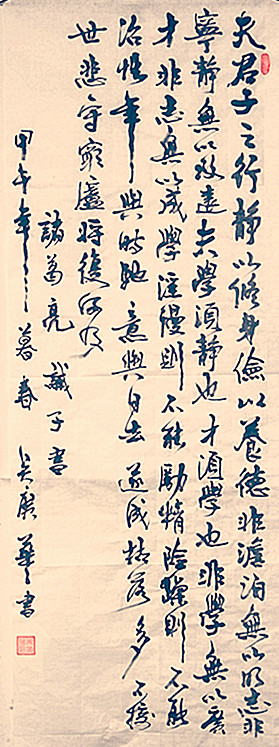 夫君子之行靜以脩身儉以養德非澹泊無以明志非
寧靜無以致遠夫學須靜也才須學也非學無以廣
才非志無以成學淫慢則不能勵精險躁則不能
治性年與時馳意與日去遂成枯落多不接
世悲守窮廬將復何及
諸葛亮誡子書
甲午年暮春吳華書